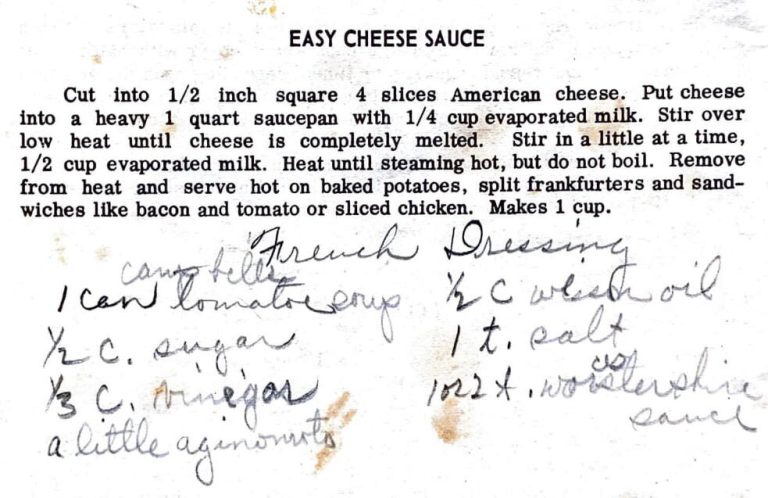 EASY CHEESE SAUCE
Cut into 1/2 inch square 4 slices American cheese. Put cheese
into a heavy 1 quart saucepan with 1/4 cup evaporated milk. Stir over
low heat until cheese is completely melted. Stir in a little at a time,
1/2 cup evaporated milk. Heat until steaming hot, but do not boil. Remove
from heat and serve hot on baked potatoes, split frankfurters and sand-
wiches like bacon and tomato or sliced chicken. Makes 1 cup.
French Dressing
campbells
1 can tomatoe soup
1/2 C. sugar
1/3 C. vinegar
a little aginomoto
1/2 C wesson oil
1 t. salt
1 or 2 t. worstershire
ces
sauce